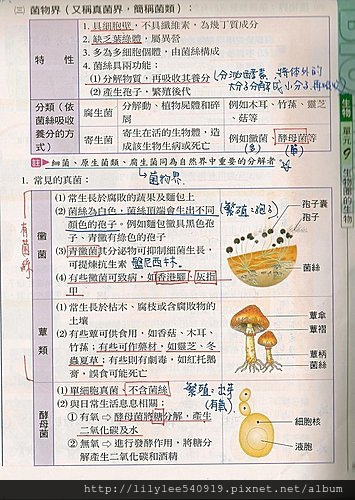 (三) 菌物界（又稱真菌界，簡稱菌類）：
特性
1. 具細胞壁，不具纖維素，為幾丁質成分
2. 缺乏葉綠體，屬異營
3. 多為多細胞個體，由菌絲構成
4. 菌絲具兩功能：
(1) 分解物質，再吸收其養分
(分泌酵素，將体外的
大分子分解成小分子再吸收)
(2) 產生孢子，繁殖後代
分類（依菌絲吸收養分的方式）
腐生菌
分解動、植物屍體和碎屑
例如木耳、竹蓀、靈芝、菇等
寄生菌
寄生在活的生物體，造成該物生病或死亡
例如黴菌、酵母菌等
(多) (單)
註 細菌、原生菌類、腐生菌同為自然界中重要的分解者
菌物界
1. 常見的真菌：
有菌絲
黴菌
(1) 常生長於腐敗的蔬果及麵包上
(2) 菌絲為白色，菌絲頂端會生出不同
顏色的孢子，例如麵包黴具黑色孢
子、青黴有綠色的孢子
(3) 青黴菌其分泌物可抑制細菌生長，
可提煉抗生素 盤尼西林
(4) 有些黴菌可致病，如香港腳、灰指
甲
(繁殖:孢子)
孢子囊
孢子
菌絲
蕈類
(1) 常生長於枯木、腐枝或含腐敗物的
土壤
(2) 有些蕈可供食用，如香菇、木耳、
竹蓀；有些可作藥材，如靈芝、冬
蟲夏草；有些則有劇毒，如紅托鵝
膏，誤食可能死亡
蕈傘
蕈褶
蕈柄
菌絲
酵母菌
(1) 單細胞真菌，不含菌絲
(2) 與日常生活息息相關：
① 有氧→酵母菌將糖分解，產生
二氧化碳及水
② 無氧→進行發酵作用，將糖分
解產生二氧化碳和酒精
繁殖:出芽
細胞核
液胞
生物
單元
9
生物圈的生物
http://lilylee540919.pixnet.net/album